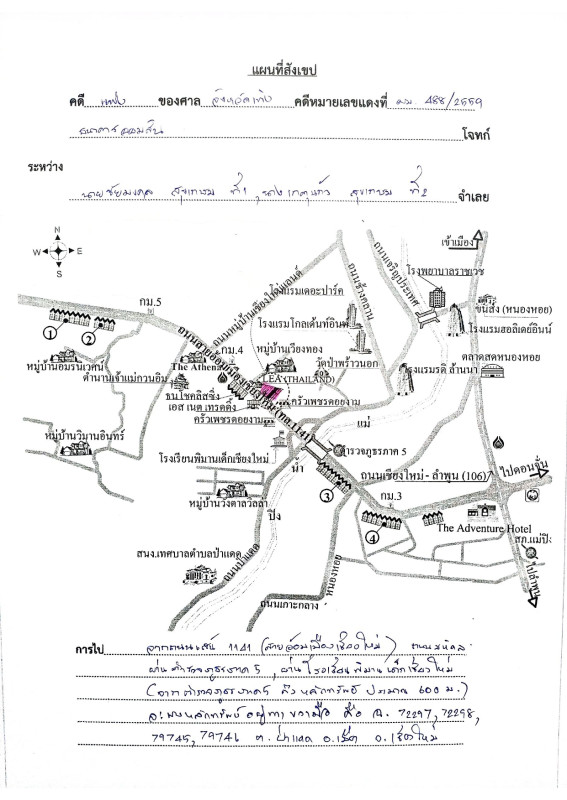 แผนที่สังเขป
คดี แพ่ง ของศาล จังหวัด คดีหมายเลขแดงที่ ผบ. 488/2559
ธนาคารออมสิน โจทก์
ระหว่าง
นายชัยมงคล ที่1 ที่2 จำเลย
N
W E
S
เข้าเมือง
โรงพยาบาลราชเวช
ถนนเจริญประเทศ
ถนนช้างคลาน
โรงแรมเดอะปาร์ค
ขนส่ง (หนองหอย)
กม.5
ถนนหมู่บ้านเชียงใหม่แลนด์
โรงแรมโกลเด้นท์อินท์
โรงแรมฮอลิเดย์อินน์
1
2
กม.4
หมู่บ้านเวียงทอง
วัดป่าพร้าวนอก
ตลาดสดหนองหอย
หมู่บ้านอมรนิเวศน์
The Athena
ตำนานเจ้าแม่กวนอิม
LEA (THAILAND)
โรงแรมรติ ล้านนา
ธน โชคลิสซิ่ง
เอส เนต เทรดดิ้ง
ครัวเพชรดอยงาม
ครัวเพชรดอยงาม
แม่
ถนนสายอ้อมเมืองเชียงใหม่ (ทล.1141)
หมู่บ้านวิมานอินทร์
ตำรวจภูธรภาค 5
โรงเรียนพิมานเด็กเชียงใหม่
น้ำ
ถนนเชียงใหม่ - ลำพูน (106)
ไปดอนจั่น
3
กม.3
หมู่บ้านวังตาลวิลล่า
ปิง
4
The Adventure Hotel
สภ.แม่ปิง
สนง.เทศบาลตำบลป่าแดด
ถนนป่าแดด
หนองหอย
ไปลำพูน
ถนนเกาะกลาง
การไป จากถนนเส้น 1141 (สายอ้อมเมืองเชียงใหม่)
ผ่านตำรวจภูธรภาค 5, ผ่านโรงเรียนพิมานเด็กเชียงใหม่
(จากตำรวจภูธรภาค5 ถึง หลักทรัพย์ ประมาณ 600 ม.)
หลักทรัพย์ อยู่ทางขวามือ คือ ฉ. 72297, 72298,
79745, 79746 ต. ป่าแดด อ.เมือง จ.เชียงใหม่